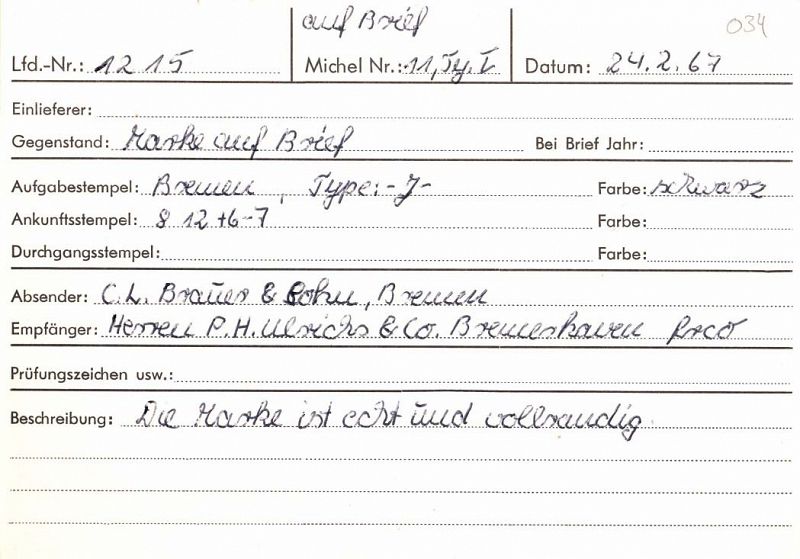 auf Brief
034
Lfd.-Nr.: 1215
Michel Nr.: 11, Ty. I
Datum: 24.2.67
Einlieferer:
Gegenstand: Marke auf Brief
Bei Brief Jahr:
Aufgabestempel: Bremen, Type: -J-
Farbe: schwarz
Ankunftsstempel: 8 12 +6-7
Farbe:
Durchgangsstempel:
Farbe:
Absender: C.L. Brauer & Sohn, Bremen
Empfänger: Herren P.H. Ulrichs & Co. Bremerhaven frco
Prüfungszeichen usw.:
Beschreibung: Die Marke ist echt und vollrandig.